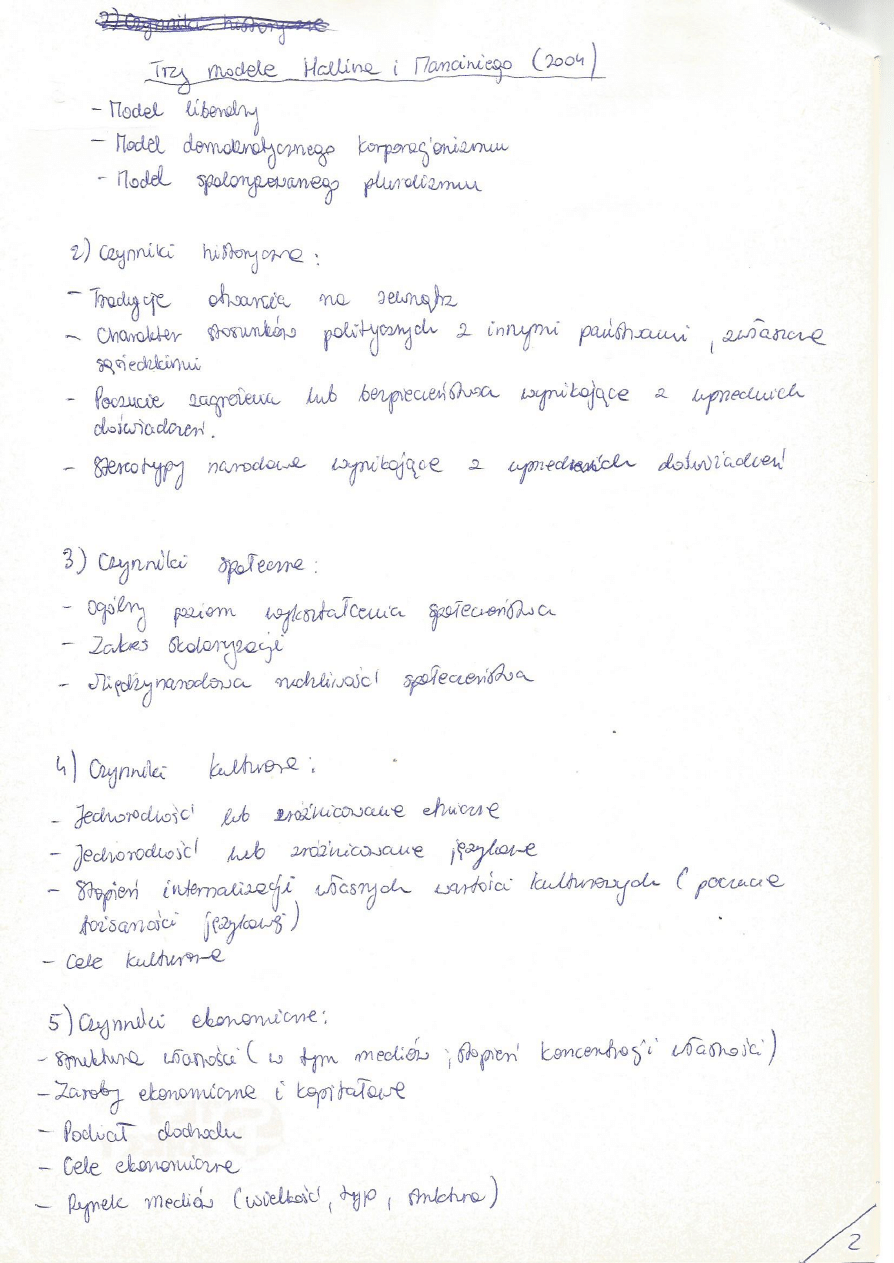 2) Czynniki historyczne
Trzy modele Hallina i Manciniego (2004)
- Model liberalny
- Model demokratycznego korporacjonizmu
- Model spolaryzowanego pluralizmu
2) Czynniki historyczne:
- Tradycje otwarcia na zewnątrz
- Charakter stosunków politycznych z innymi państwami, zwłaszcza
sąsiedzkimi
- Poczucie zagrożenia lub bezpieczeństwa wynikające z uprzednich
doświadczeń.
- Stereotypy narodowe wynikające z uprzednich doświadczeń
3) Czynniki społeczne:
- Ogólny poziom wykształcenia społeczeństwa
- Zakres skolaryzacji
- Międzynarodowa ruchliwość społeczeństwa
4) Czynniki kulturowe:
- Jednorodność lub zróżnicowanie etniczne
- Jednorodność lub zróżnicowanie językowe
- Stopień internalizacji własnych wartości kulturowych (poczucie
tożsamości językowej)
- Cele kulturowe
5) Czynniki ekonomiczne:
- Struktura własności (w tym mediów; stopień koncentracji własności)
- Zasoby ekonomiczne i kapitałowe
- Podział dochodu
- Cele ekonomiczne
- Rynek mediów (wielkość, typ, struktura)
2